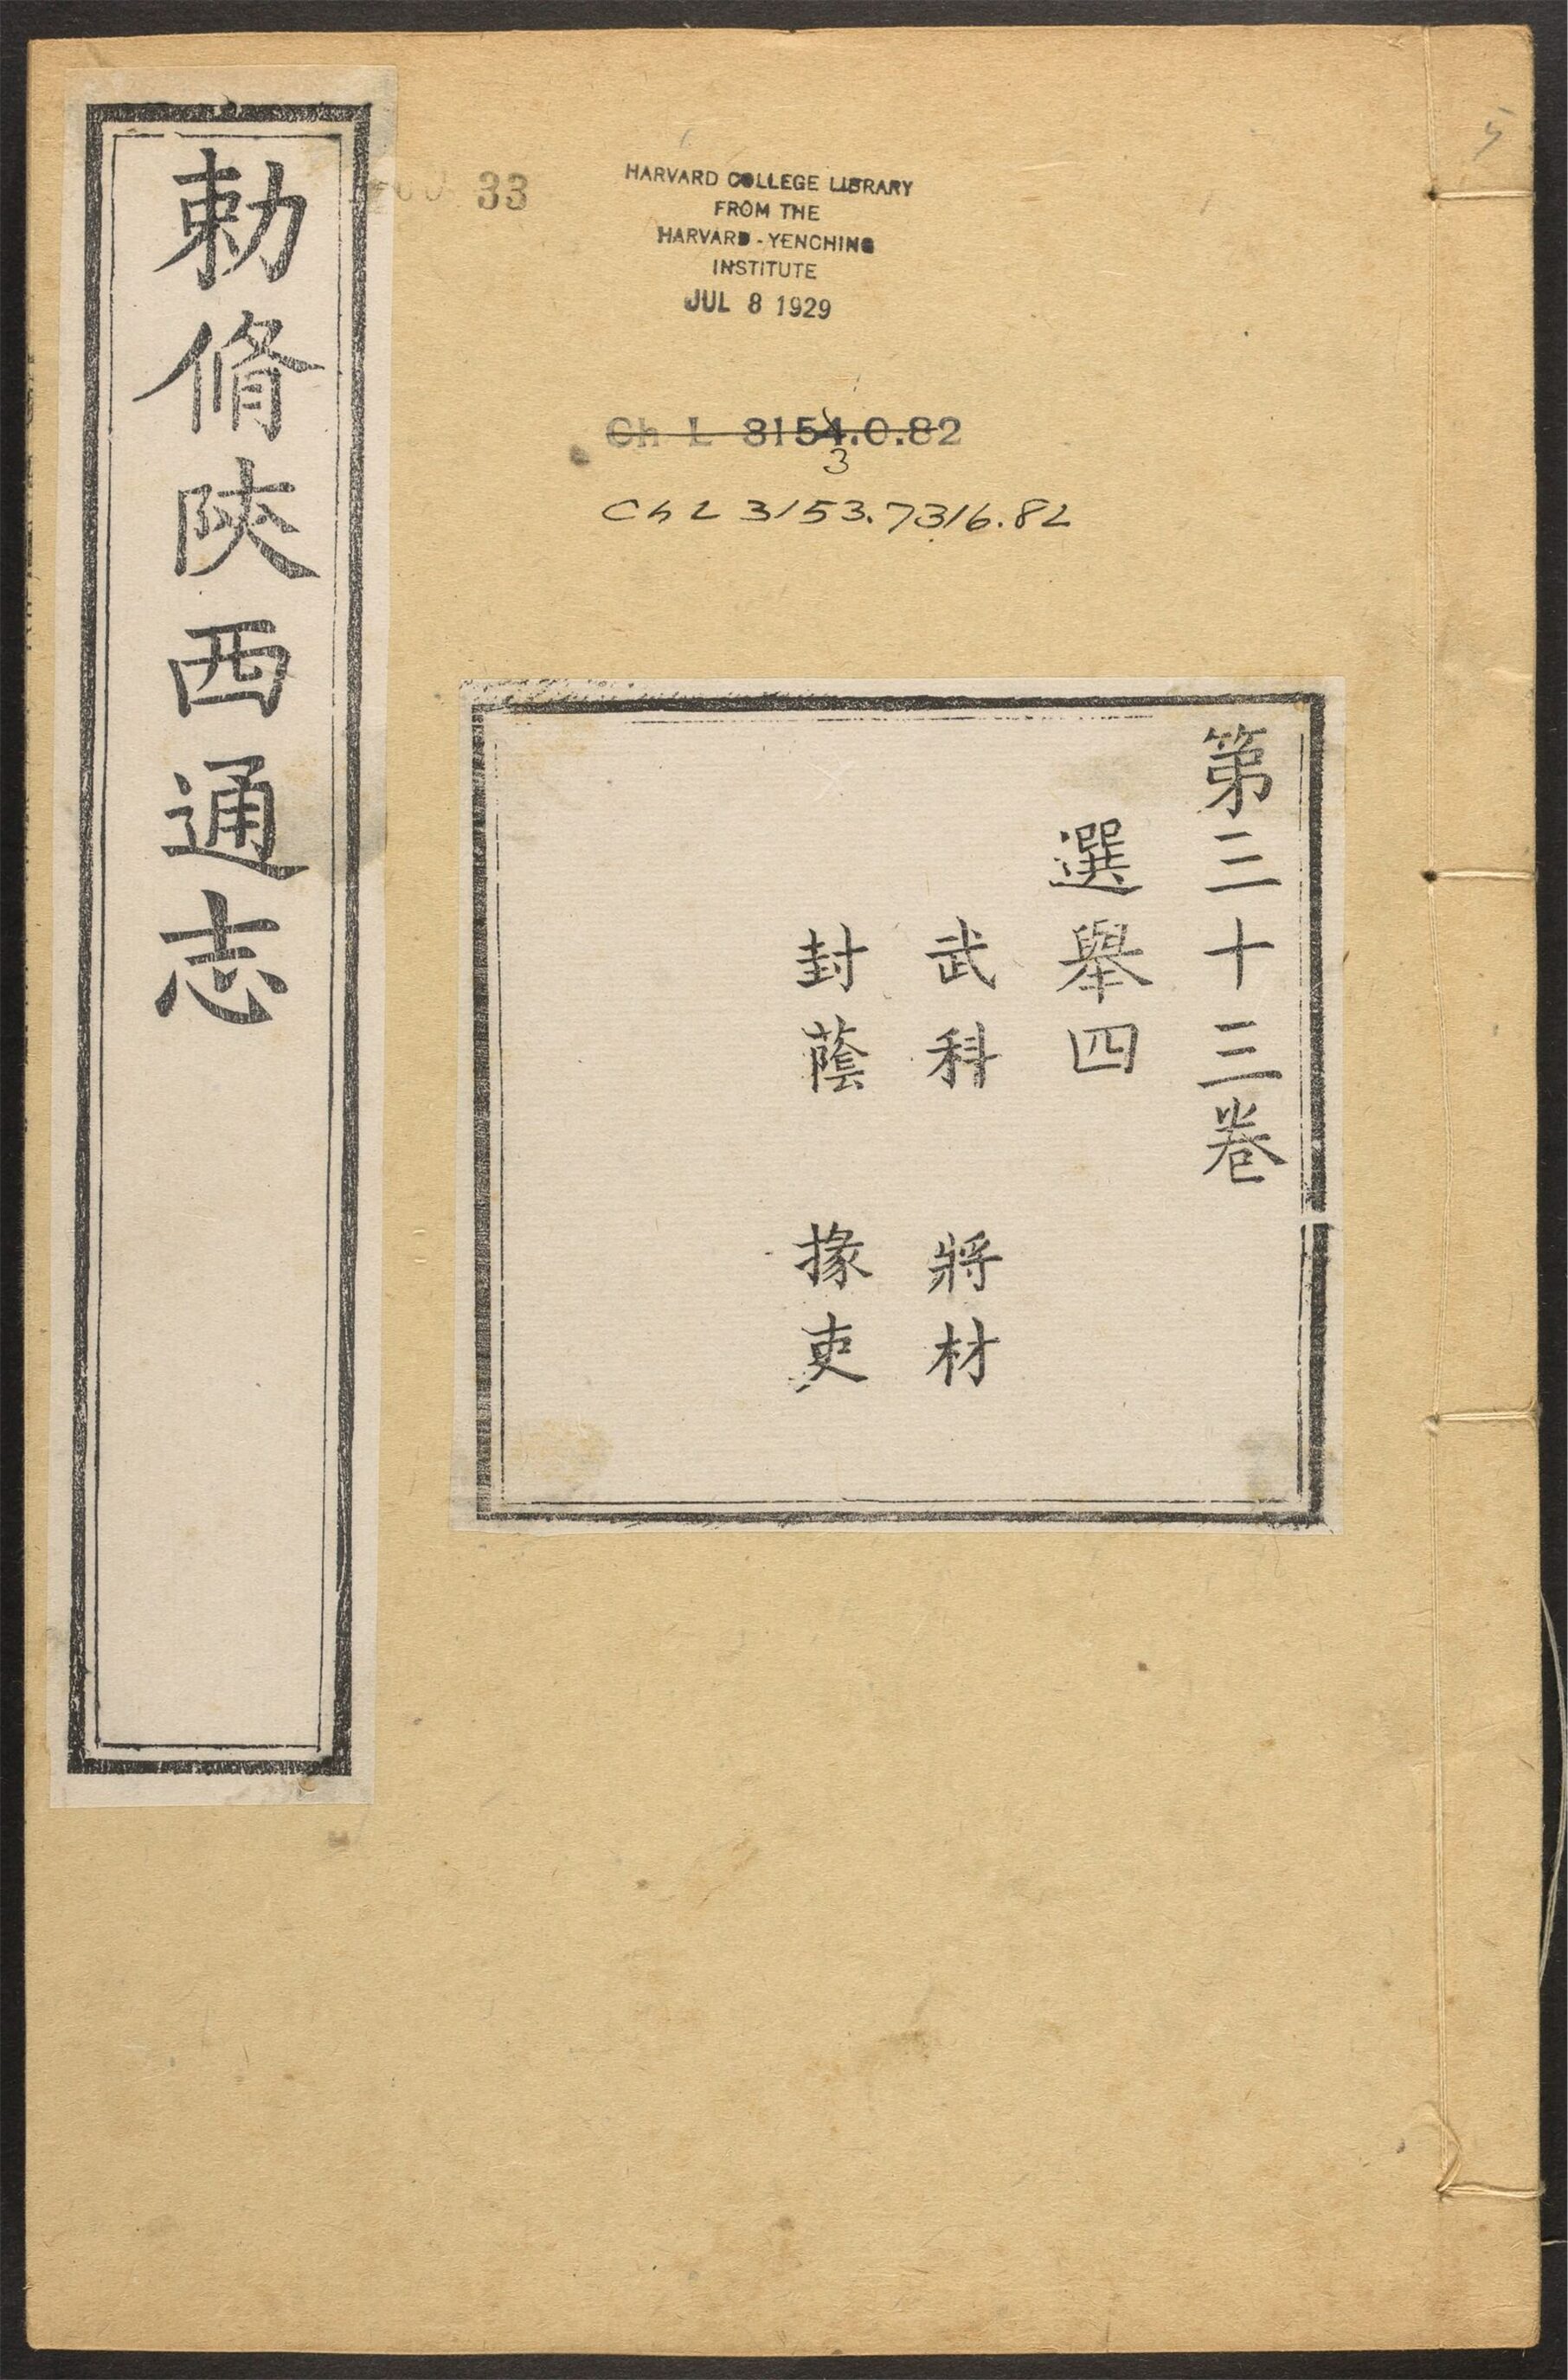 勅脩陝西通志
33
HARVARD COLLEGE LIBRARY
FROM THE
HARVARD-YENCHING
INSTITUTE
JUL 8 1929
Ch L 3154.0.82
3
Ch L 3153.7316.82
5
第三十三卷
選舉四
武科 將材
封蔭 掾吏